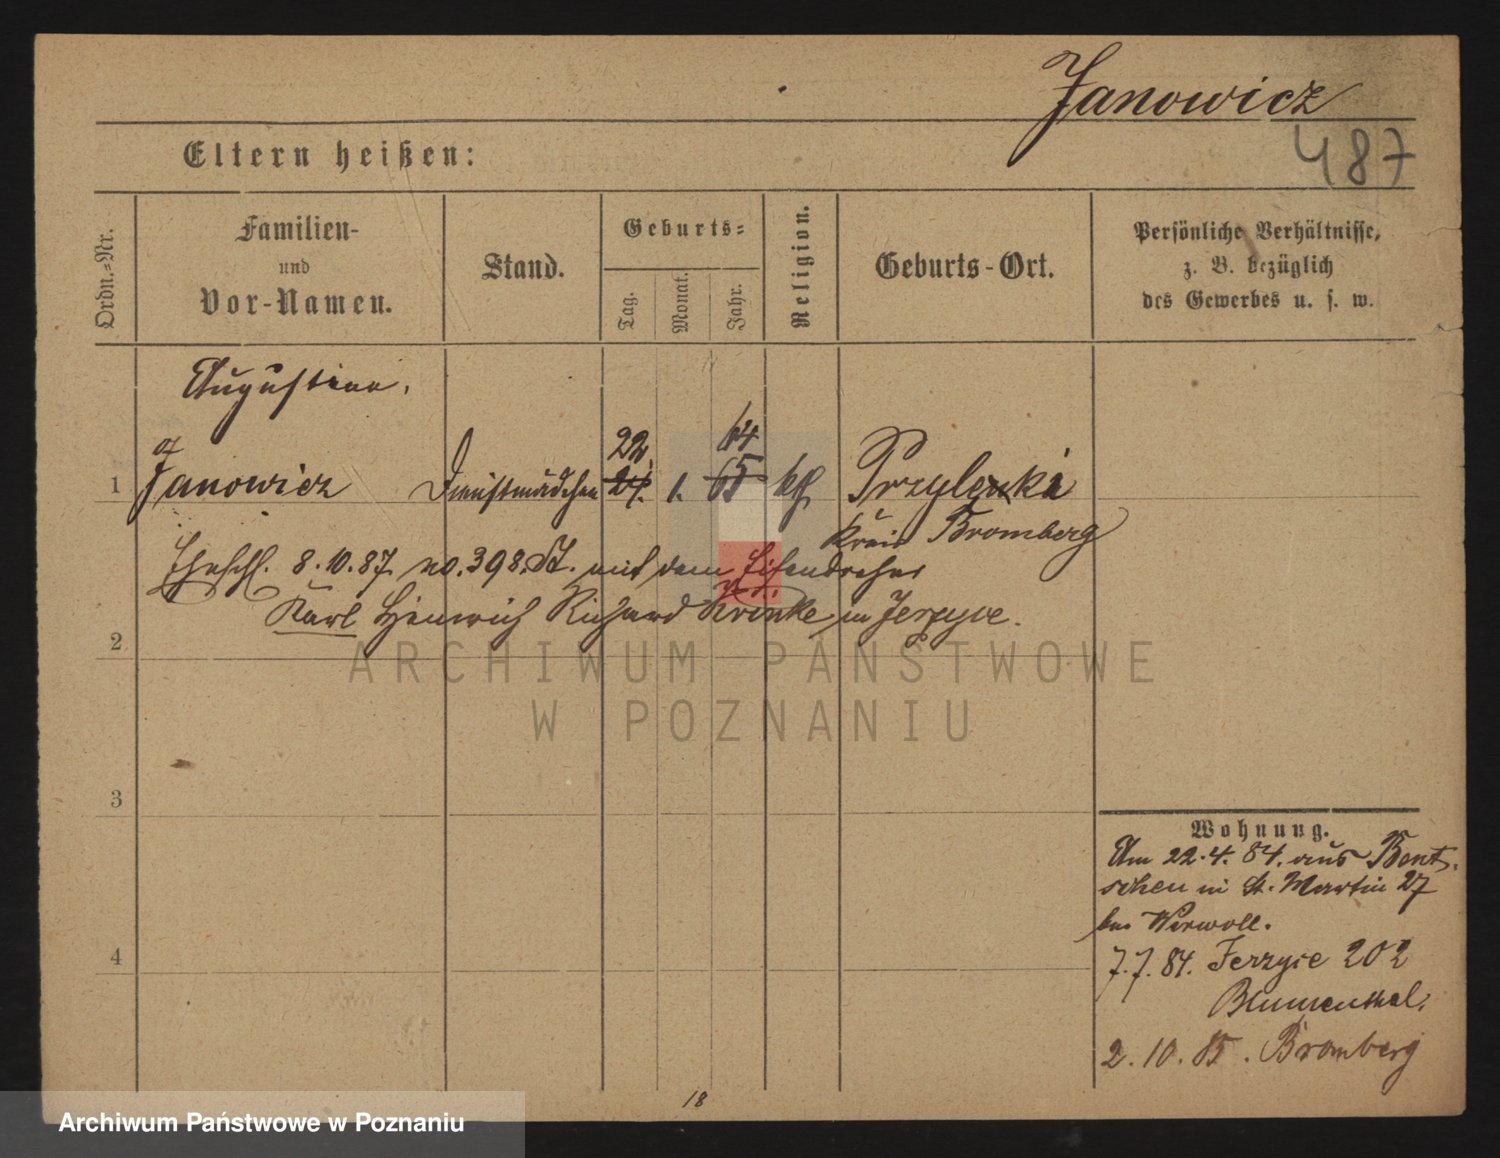 Janowicz
487
Eltern heißen:
Ordn.-Nr.
Familien-
und
Vor-Namen.
Stand.
Geburts-
Tag.
Monat.
Jahr.
Religion.
Geburts-Ort.
Persönliche Verhältnisse,
z. B. bezüglich
des Gewerbes u. s. w.
Augustine.
22. 64
1 Janowicz Dienstmädchen 24. 1. 65 kth Przylenki
Kreis Bromberg
Eheschl. 8.10.87. no. 398. St. mit dem Eisendreher
Karl Heinrich Richard Krönke in Jerzyce.
2
3
4
Wohnung.
Am 22.4.84. aus Bent-
schen in St. Martin 27
bei Werwoll.
7.7.84. Jerzyce 202
Blumenthal.
2.10.85. Bromberg
18
ARCHIWUM PAŃSTWOWE
W POZNANIU
Archiwum Państwowe w Poznaniu